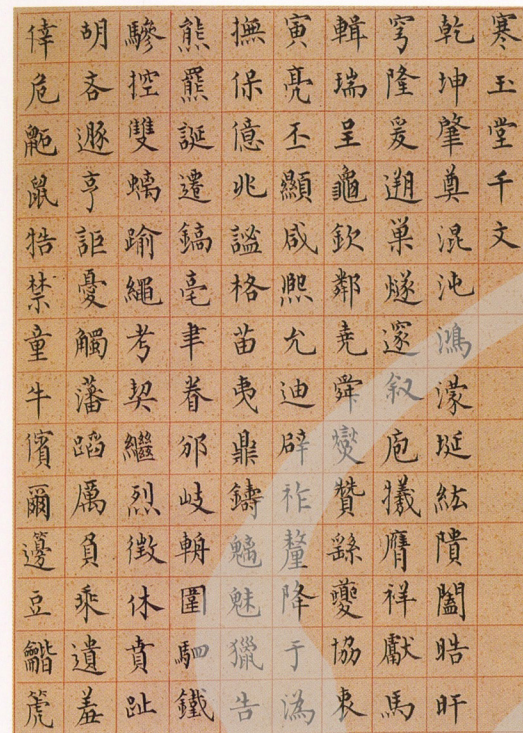 寒玉堂千文
乾坤肇奠混沌鴻濛埏紘隤闔晧旰
穹隆爰遡巢燧邃叙庖犧膺祥獻馬
輯瑞呈龜欽鄰堯舜燮贊繇夔協衷
寅亮丕顯咸熙允迪辟祚釐降于溈
撫保億兆謐格苗夷鼎鑄魑魅獵告
熊羆誕遷鎬亳聿眷邠岐輈圍駟鐵
驂控雙螭踰繩考契繼烈徵休賁趾
胡吝遯亨詎憂觸藩蹈厲負乘遺羞
倖危鼫鼠牿禁童牛儐爾籩豆龤篪